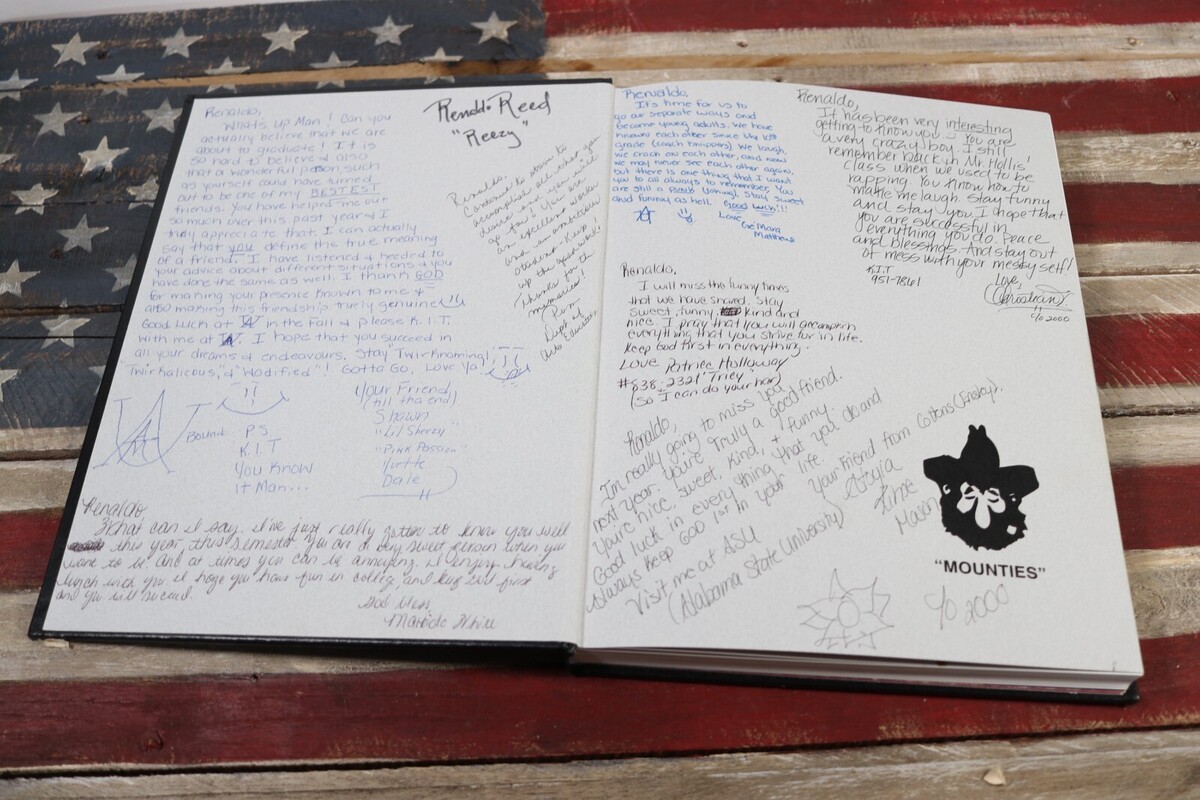 Renaldo,
What's up Man! Can you
actually believe that we are
about to graduate! It is
so hard to believe & also
that a wonderful person, such
as yourself could have turned
out to be one of my BESTEST
friends. You have helped me out
so much over this past year & I
truly appreciate that. I can actually
say that you define the true meaning
of a friend. I have listened & heeded to
your advice about different situations & you
have done the same as well. I thank GOD
for making your presence known to me &
also making this friendship truely genuine
Good Luck at in the Fall & please K.I.T.
with me at. I hope that you succeed in
all your dreams & endeavours. Stay
"Twirkalicious," & "Wodified"! Gotta Go, Love Ya!
Bound
P.S.
K.I.T
You Know
It Man...
Your Friend
(till tha end)
Shawn
"Lil Sheezy"
"Pink Passion"
Yvette
Dale
Renaldo
What can I say. I've just really gotten to know you well
this year, this semester. You are a very sweet person when you
want to be. And at times you can be annoying. I enjoy having
lunch with you. I hope you have fun in college, and keep God first
and you will succeed.
God Bless,
Renaldo Reed
"Reezy"
Renaldo,
Continue to strive to
accomplish all what you
desire and you will
go far! You are
an excellent worker
and an ambitious
student. Keep
up the good work!
Thanks for the
memories!
Pim
Dept of
Renaldo,
It's time for us to
go our separate ways and
become young adults. We have
known each other since the
grade We laugh,
we crack on each other, and now
we may never see each other again,
but there is one thing that I want
you to all always to remember. You
are still a Stay sweet
and funny as hell. Good Luck!!
Love,
Matthews
Renaldo,
It has been very interesting
getting to know you. You are
a very crazy boy. I still
remember back in Mr. Hollis'
class when we used to be
rapping. You know how to
make me laugh. Stay funny
and stay you. I hope that
you are successful in
everything you do. Peace
and Blessings. And stay out
of mess with your messy self!
K.I.T
951-7861
Love,
c/o 2000
Renaldo,
I will miss the funny times
that we have shared. Stay
sweet, funny, kind and
nice. I pray that you will accomplish
everything that you strive for in life.
Keep God first in everything.
Love Patrice Holloway
#838-2321 "Triey"
(So I can do your hair)
Renaldo,
I'm really going to miss you
next year. You're truly a good friend.
You're nice, sweet, kind, + funny.
Good luck in every thing that you do and
always keep God 1st in your life.
Visit me at ASU
(Alabama State University)
Your friend from Cottons (Ensley).
Mason
"MOUNTIES"
c/o 2000